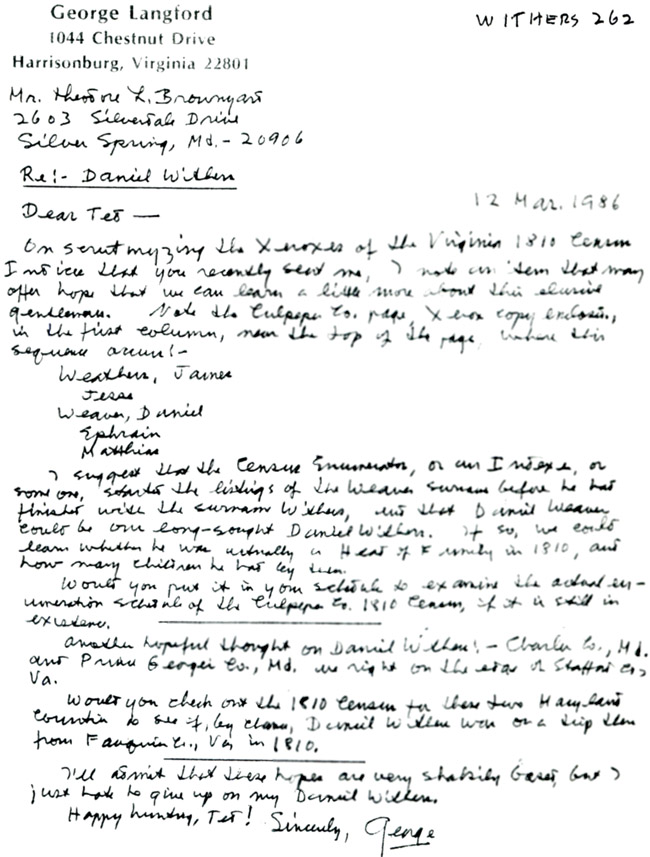 George Langford
1044 Chestnut Drive
Harrisonburg, Virginia 22801
WITHERS 262
Mr. Theodore L. Brownyard
2603 Silverdale Drive
Silver Spring, Md. - 20906
Re:- Daniel Withers
12 Mar. 1986
Dear Ted —
On scrutinyzing the Xeroxes of the Virginia 1810 Census
Indices that you recently sent me, I note an item that may
offer hope that we can learn a little more about this elusive
gentleman. Note the Culpeper Co. page, Xerox copy enclosed,
in the first column, near the top of the page, where this
sequence occurs:-
Weathers, James
Jesse
Weaver, Daniel
Ephraim
Matthias
I suggest that the Census Enumerator, or an Indexer, or
someone, started the listings of the Weaver surname before he had
finished with the surname Withers, and that Daniel Weaver
could be our long-sought Daniel Withers. If so, we could
learn whether he was actually a Head of Family in 1810, and
how many children he had by then.
Would you put it in your schedule to examine the actual en-
umeration schedule of the Culpeper Co. 1810 Census, if it is still in
existence.
Another hopeful thought on Daniel Withers:- Charles Co., Md.
and Prince Georges Co., Md. are right on the edge of Stafford Co.,
Va.
Would you check out the 1810 Census for these two Maryland
Counties to see if, by chance, Daniel Withers was on a trip there
from Fauquier Co., Va. in 1810.
I'll admit that these hopes are very shakily based, but I
just hate to give up on my Daniel Withers.
Happy hunting, Ted! Sincerely, George